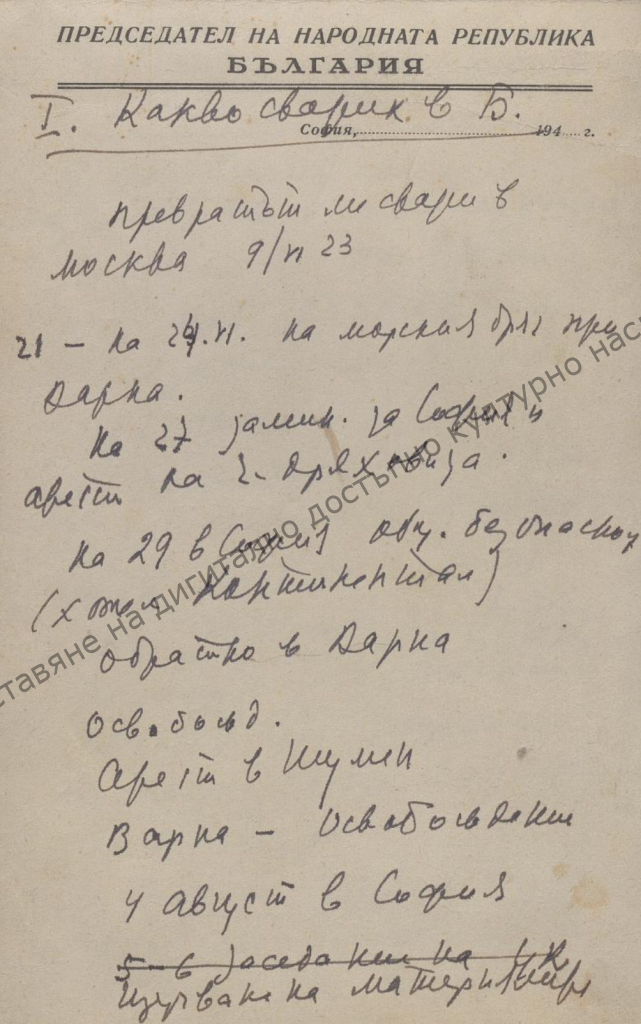 ПРЕДСЕДАТЕЛ НА НАРОДНАТА РЕПУБЛИКА
БЪЛГАРИЯ
I. Какво сварих в Б.
София, 194 г.
превратът ме свари в
Москва 9/VI 23
21 – на 24.VI. на морския бряг при
Варна.
На 27 замин. за София и
арест на г. Оряховица.
на 29 в София общ. безопасност
(хотел Континентал)
обратно в Варна
Осв.божд.
Арест в Шумен
Варна – Освобождение
4 август в София
5–6 заседание на ЦК
Изучване на материалите
ставяне на дигитално достъпно културно насл